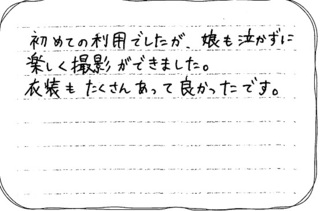 初めての利用でしたが、娘も泣かずに
楽しく撮影ができました。
衣装もたくさんあって良かったです。